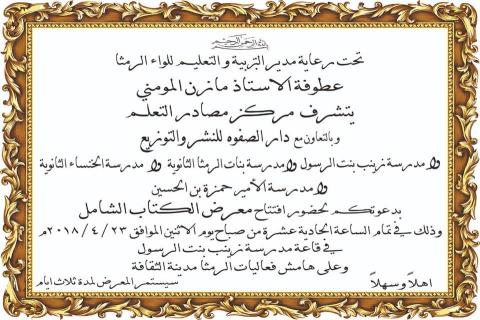 بسم الله الرحمن الرحيم
تحت رعاية مدير التربية والتعليم للواء الرمثا
عطوفة الاستاذ مازن المومني
يتشرف مركز مصادر التعلم
وبالتعاون مع دار الصفوه للنشر والتوزيع
و مدرسة زينب بنت الرسول و مدرسة بنات الرمثا الثانوية و مدرسة الخنساء الثانوية
و مدرسة الأمير حمزة بن الحسين
بدعوتكم لحضور افتتاح معرض الكتاب الشامل
وذلك في تمام الساعة الحادية عشرة من صباح يوم الاثنين الموافق ٢٣ / ٤ / ٢٠١٨م
في قاعة مدرسة زينب بنت الرسول
وعلى هامش فعاليات الرمثا مدينة الثقافة
اهلاً وسهلاً
سيستمر المعرض لمدة ثلاث ايام